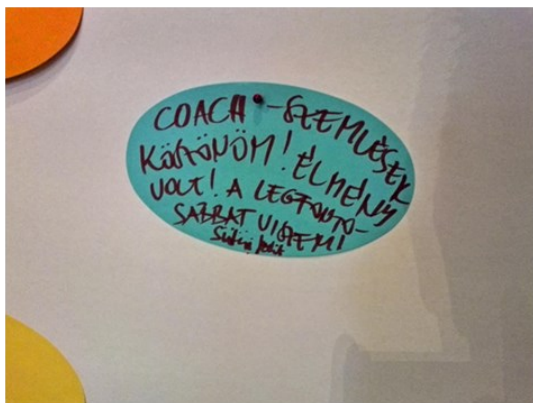 COACH-SZEMLÉSEK
KÖSZÖNÖM! ÉLMÉNY
VOLT! A LEGFONTO-
SABBAT VISZEM!